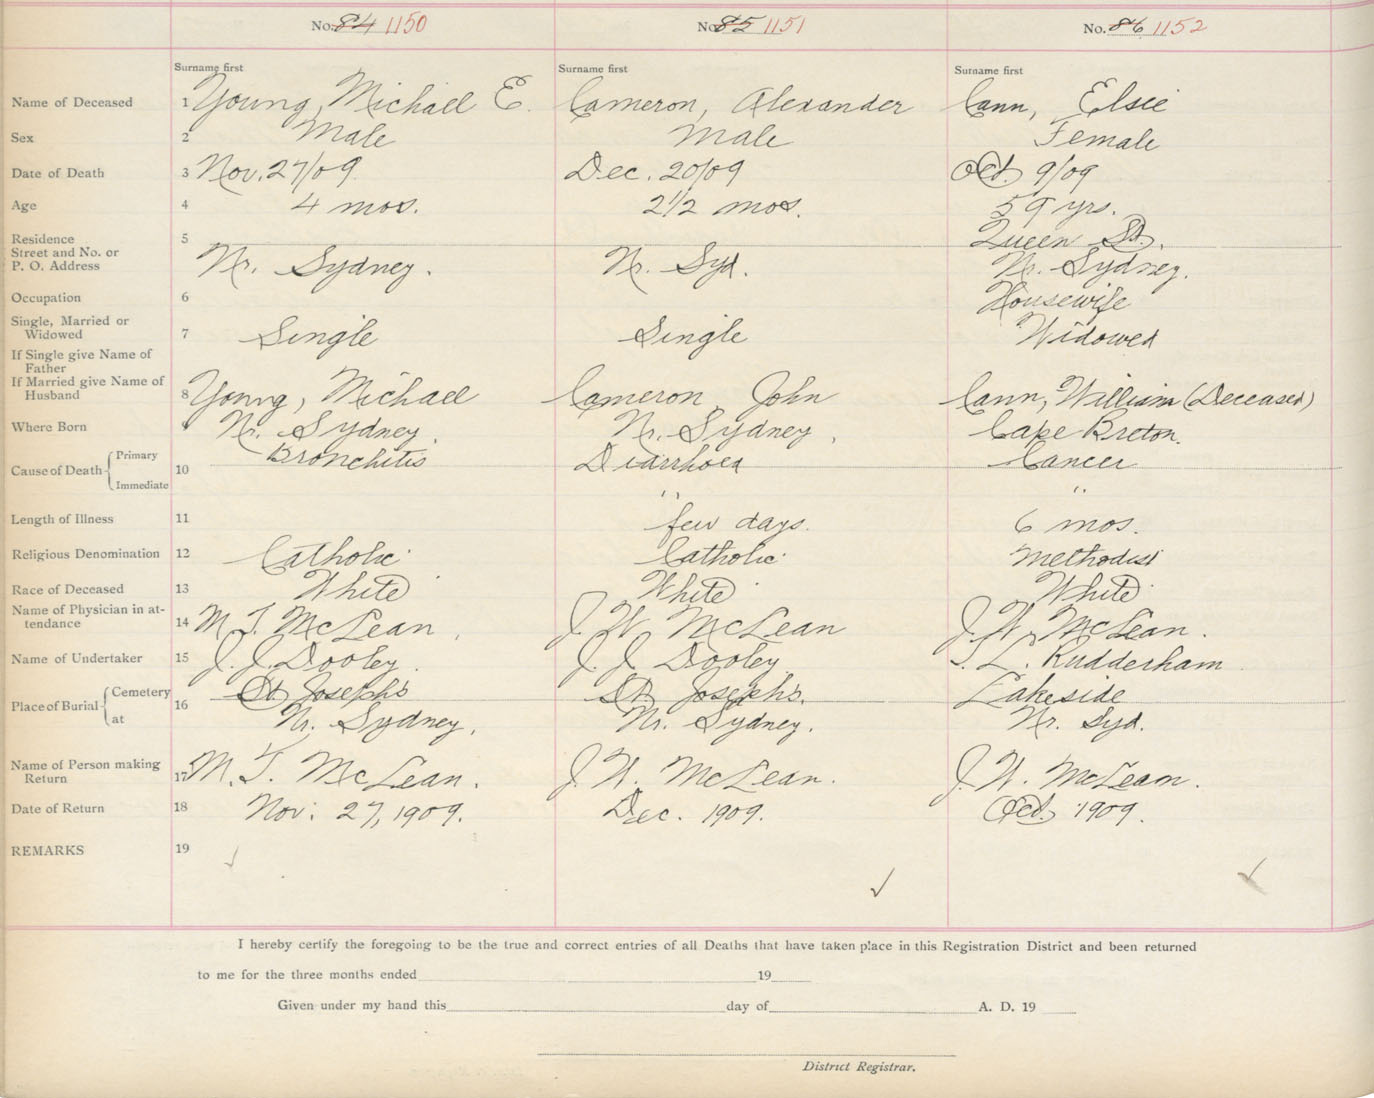 No. 84 1150 No. 85 1151 No. 86 1152
Surname first Surname first Surname first
Name of Deceased 1 Young, Michael E. Cameron, Alexander Cann, Elsie
Sex 2 Male Male Female
Date of Death 3 Nov. 27/09 Dec. 20/09 Oct. 9/09
Age 4 4 mos. 2 1/2 mos. 59 yrs.
Residence 5 Queen St.
Street and No. or
P. O. Address Nr. Sydney. Nr. Syd. Nr. Sydney.
Occupation 6 Housewife
Single, Married or
Widowed 7 Single Single Widowed
If Single give Name of
Father
If Married give Name of
Husband 8 Young, Michael Cameron, John Cann, William (Deceased)
Where Born 9 Nr. Sydney. Nr. Sydney, Cape Breton.
Cause of Death Primary 10 Bronchitis Diarrhoea Cancer
Immediate " "
Length of Illness 11 few days. 6 mos.
Religious Denomination 12 Catholic Catholic Methodist
Race of Deceased 13 White White White
Name of Physician in at-
tendance 14 M. T. McLean, J. W. McLean J. W. McLean.
Name of Undertaker 15 J. J. Dooley. J. J. Dooley L. Rudderham
Place of Burial Cemetery 16 St. Joseph's St. Joseph's. Lakeside
at Nr. Sydney, Nr. Sydney. Nr. Syd.
Name of Person making
Return 17 M. T. McLean. J. W. McLean. J. W. McLean.
Date of Return 18 Nov. 27, 1909. Dec. 1909. Oct. 1909.
REMARKS 19 ✓ ✓ ✓
I hereby certify the foregoing to be the true and correct entries of all Deaths that have taken place in this Registration District and been returned
to me for the three months ended 19
Given under my hand this day of A. D. 19
District Registrar.